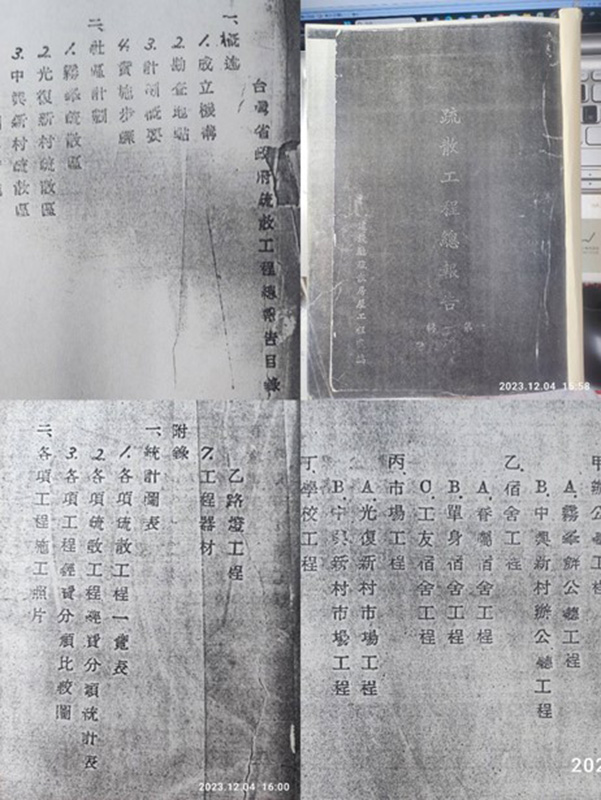 台灣省政府疏散工程總報告目錄
一、概述
1. 成立機構
2. 勘查地點
3. 計劃概要
4. 實施步驟
二、社區計劃
1. 霧峯疏散區
2. 光復新村疏散區
3. 中興新村疏散區
疏散工程總報告
2023.12.04 15:58
乙路燈工程
7. 工程器材
附錄
一、統計圖表
1. 各項疏散工程一覽表
2. 各項疏散工程經費分類統計表
3. 各項工程經費分類比較圖
二、各項工程施工照片
2023.12.04 16:00
甲.辦公廳工程
A. 霧峯辦公廳工程
B. 中興新村辦公廳工程
乙.宿舍工程
A. 眷屬宿舍工程
B. 單身宿舍工程
C. 工友宿舍工程
丙.市場工程
A. 光復新村市場工程
B. 中興新村市場工程
丁.學校工程
202